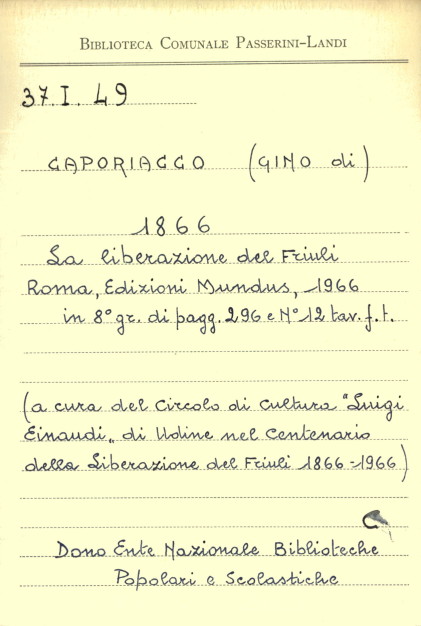 BIBLIOTECA COMUNALE PASSERINI-LANDI
37.I.49
CAPORIACCO (GINO di)
1866
La liberazione del Friuli
Roma, Edizioni Mundus, 1966
in 8° gr. di pagg. 296 e N° 12 tav. f. t.
(a cura del Circolo di Cultura "Luigi
Einaudi" di Udine nel Centenario
della Liberazione del Friuli 1866-1966)
Dono Ente Nazionale Biblioteche
Popolari e Scolastiche